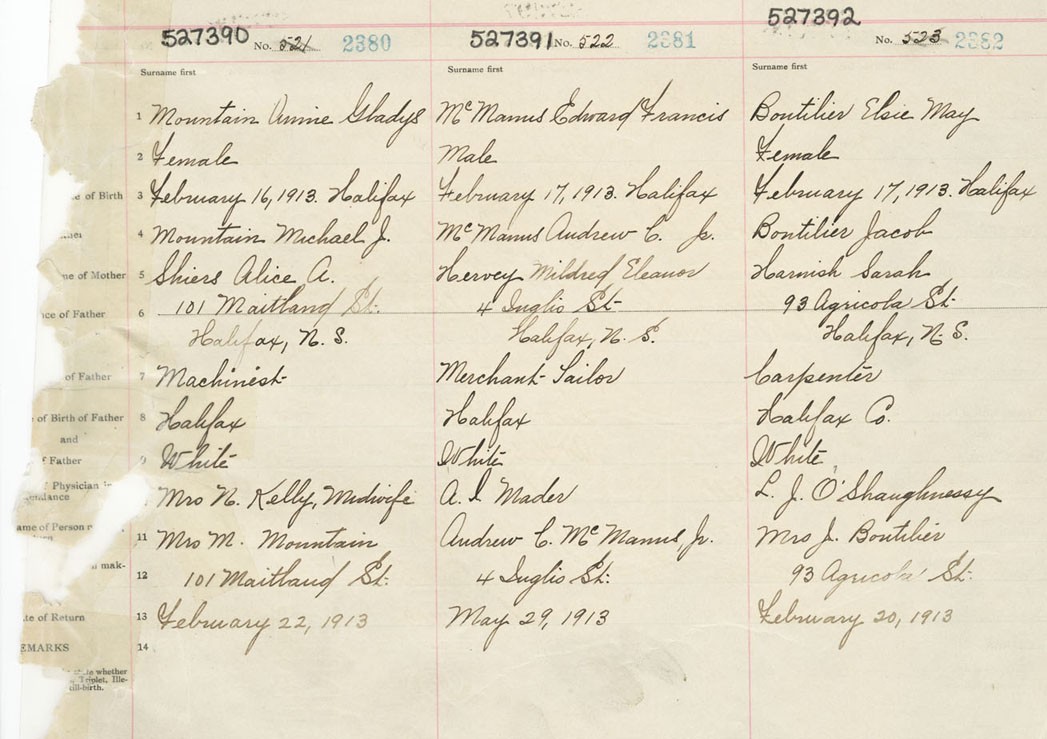 527390 No. 521 2380
527391 No. 522 2381
527392
No. 523 2382
Surname first
Surname first
Surname first
1 Mountain Annie Gladys
McManus Edward Francis
Boutilier Elsie May
2 Female
Male
Female
e of Birth 3 February 16, 1913. Halifax
February 17, 1913. Halifax
February 17, 1913. Halifax
4 Mountain Michael J.
McManus Andrew C. Jr.
Boutilier Jacob
me of Mother 5 Shiers Alice A.
Hervey Mildred Eleanor
Harnish Sarah
nce of Father 6 101 Maitland St.
4 Inglis St.
93 Agricola St.
Halifax, N. S.
Halifax, N. S.
Halifax, N. S.
of Father 7 Machinist
Merchant Tailor
Carpenter
of Birth of Father 8 Halifax
Halifax
Halifax Co.
and
f Father 9 White
White
White
f Physician in
endance Mrs N. Kelly, Midwife
A. I. Mader
L. J. O'Shaughnessy
ame of Person
11 Mrs M. Mountain
Andrew C. McManus Jr.
Mrs J. Boutilier
mak-
12 101 Maitland St.
4 Inglis St.
93 Agricola St.
te of Return 13 February 22, 1913
May 29, 1913
February 20, 1913
EMARKS 14
whether
Triplet, Ille-
till-birth.